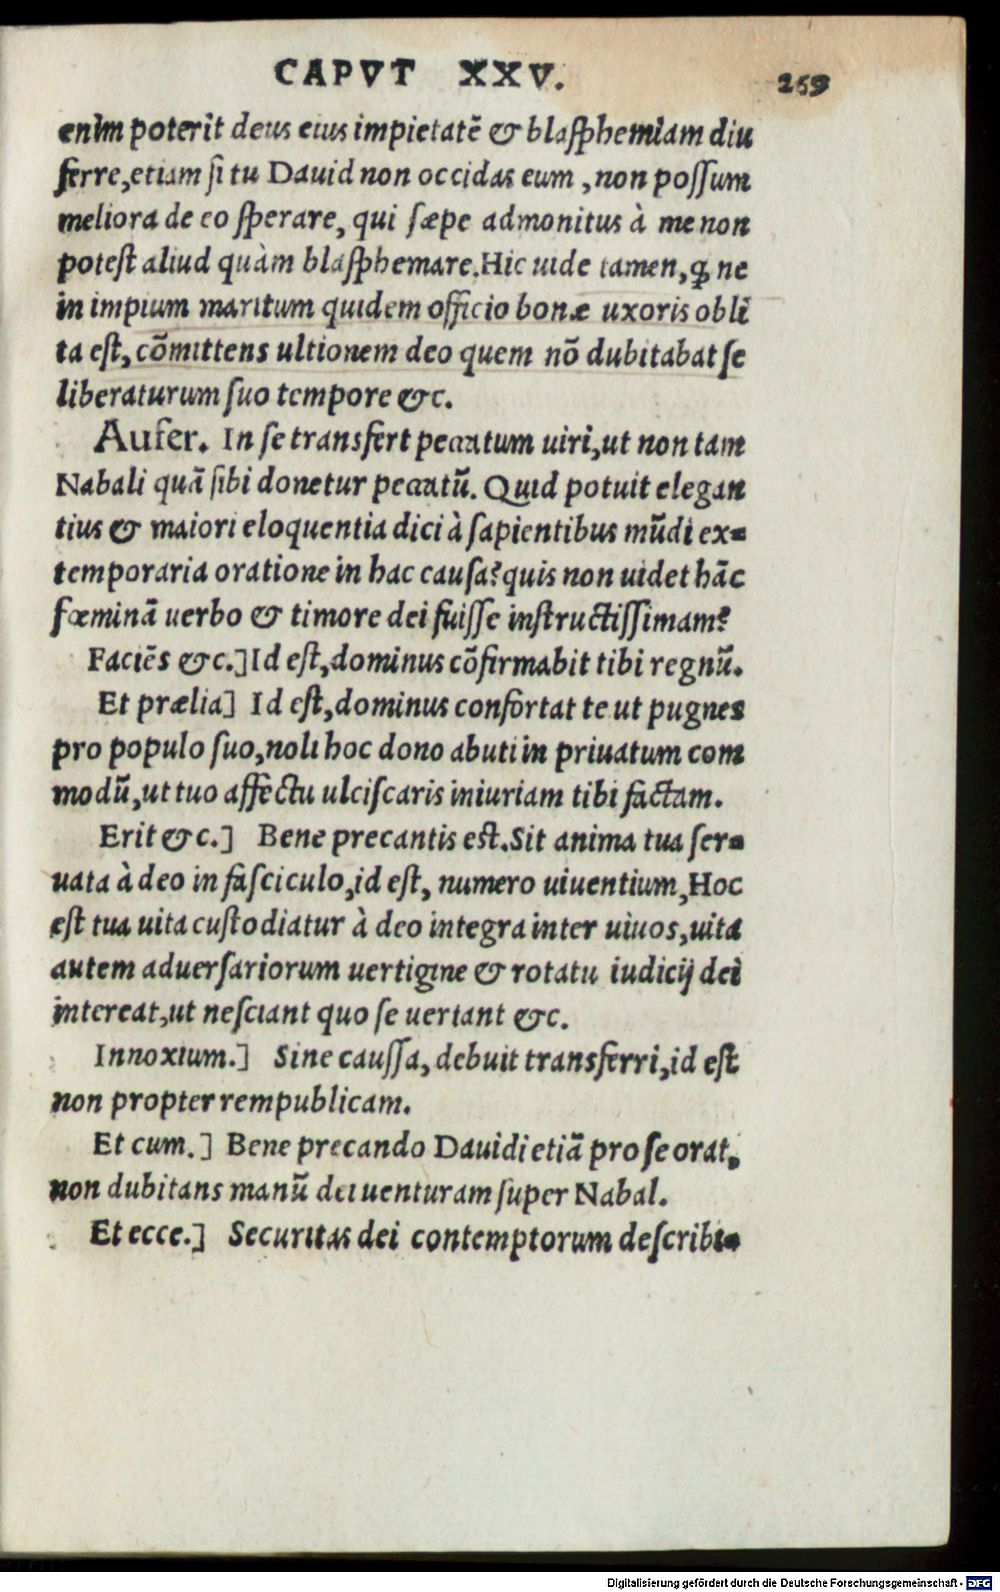 CAPVT XXV. 269
enim poterit deus eius impietatẽ & blasphemiam diu
ferre,etiam si tu Dauid non occidas eum ,non possum
meliora de eo sperare, qui sæpe admonitus à me non
potest aliud quàm blasphemare.Hic uide tamen,ꝙ ne
in impium maritum quidem officio bonæ uxoris obli
ta est, cõmittens ultionem deo quem nõ dubitabat se
liberaturum suo tempore &c.
Aufer. In se transfert peccatum uiri,ut non tam
Nabali quã sibi donetur peccatũ. Quid potuit elegan
tius & maiori eloquentia dici à sapientibus mũdi ex=
temporaria oratione in hac causa?quis non uidet hãc
fœminã uerbo & timore dei fuisse instructissimam?
Faciẽs &c.]Id est,dominus cõfirmabit tibi regnũ.
Et prælia] Id est,dominus confortat te ut pugnes
pro populo suo,noli hoc dono abuti in priuatum com
modũ,ut tuo affectu ulciscaris iniuriam tibi factam.
Erit &c.] Bene precantis est.Sit anima tua ser=
uata à deo in fasciculo,id est, numero uiuentium,Hoc
est tua uita custodiatur à deo integra inter uiuos,uita
autem aduersariorum uertigine & rotatu iudicij dei
intereat,ut nesciant quo se uertant &c.
Innoxium.] Sine caussa, debuit transferri,id est
non propter rempublicam.
Et cum.] Bene precando Dauidi etiã pro se orat,
non dubitans manũ dei uenturam super Nabal.
Et ecce.] Securitas dei contemptorum describi=
Digitalisierung gefördert durch die Deutsche Forschungsgemeinschaft - DFG